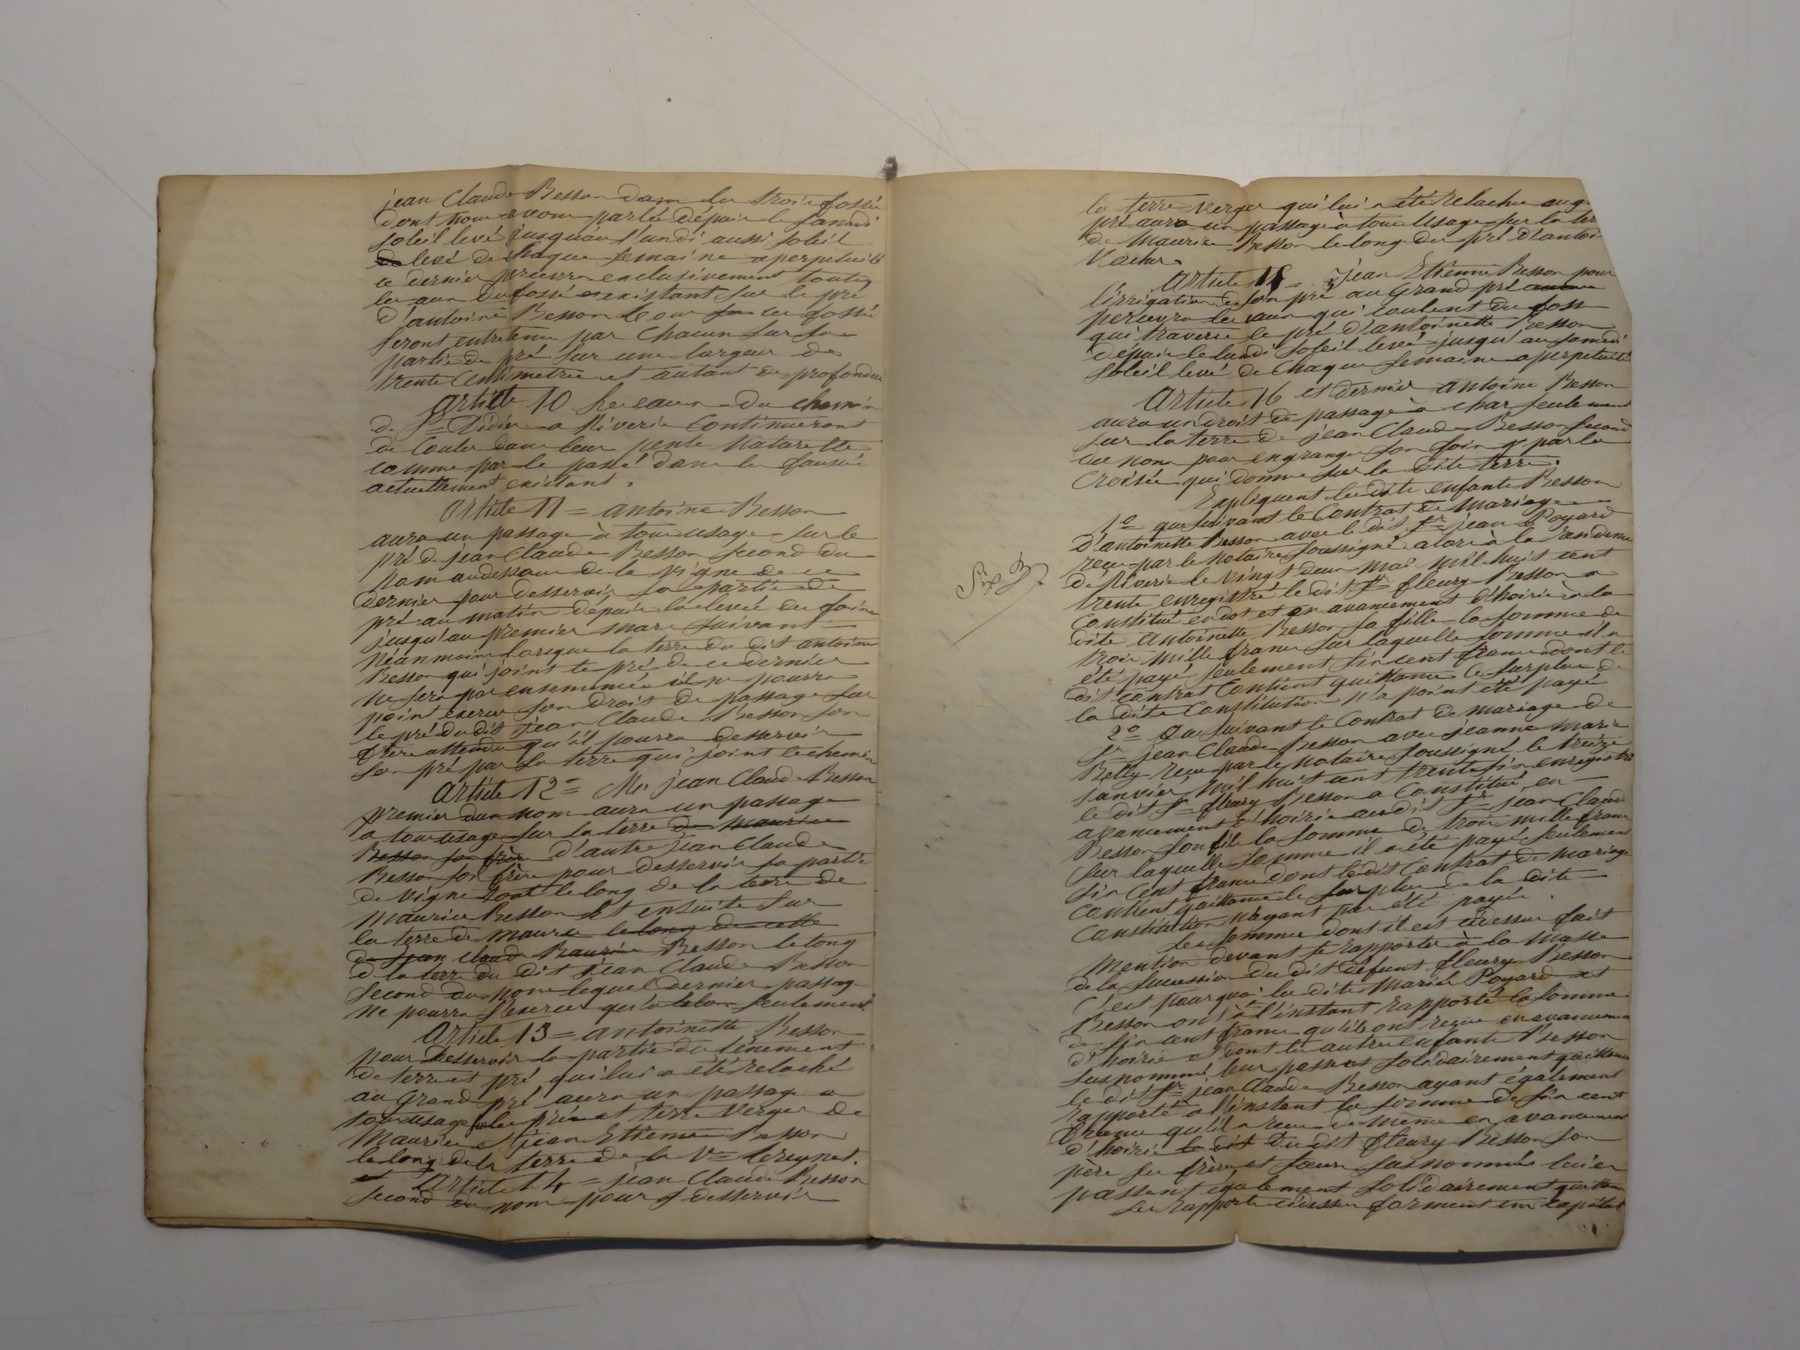 jean Claude Besson dans les trois fossés
dont nous avons parlé dépuis le samedi
soleil levé jusqu'au lundi aussi soleil
levé de chaque semaine a perpetuité
ce dernier percevra exclusivement toutes
les aux du fossé existant sur le pré
d'antoine Besson ces fossés
seront entretenu par chacun sur sa
partie de pré sur une largeur de
trente centimetres et autant de profondeur
article 10 les eaux du chemin
de St Didier a Riverie continueront
de couler dans leur pente naturelle
comme par le passé dans les faussés
actuellement existant.
Article 11 = antoine Besson
aura un passage à tous usage sur le
pré de jean Claude Besson second du
nom audessous de la vigne de ce
dernier pour desservir sa partie de
pré au matin depuis la levée des foins
jusqu'au premier mars suivant
Néanmoins lorsque la terre du dit antoine
Besson qui joint le pré de ce dernier
ne sera pas ensemencée il ne pourra
point exercer son droit de passage sur
le pré du dit jean Claude Besson son
frère attendu qu'il pourra desservir
son pré par sa terre qui joint le chemin
article 12 = Mr jean Claude Besson
premier du nom aura un passage
a tous usage sur la terre de maurice
Besson son frère d'autre jean Claude
Besson son frère pour desservir sa partie
de vigne le long de la terre de
maurice Besson et ensuite sur
la terre de maurice le long de cette
de jean Claude Maurice Besson le long
de la terre du dit jean Claude Besson
second du nom lequel dernier passage
ne pourra s'exercer qu'a talon seulement.
Article 13 = antoinette Besson
pour desservir la partie du tenement
de terre et pré qui lui a été relaché
au grand pré aura un passage a
tous usage sur les prés et terre verger de
Maurice et jean Etienne Besson
le long de la terre de la Ve
article 14 = jean Claude Besson
second du nom pour desservir
la terre verger qui lui a été relaché au g
pré aura un passage à tous usage sur la ter
de Maurice Besson le long du pré d'antoi
Vacher
Article 15 = jean Etienne Besson pour
l'irrigation de son pré au Grand pré
percevra les eaux qui coulent du foss
qui traverse le pré d'antoinette Besson
dépuis le lundi soleil levé jusqu'au samedi
soleil levé de chaque semaine a perpetuité
Article 16 et dernier antoine Besson
aura un droit de passage à char seulement
sur la terre de jean Claude Besson second
du nom pour engranger son foin par la
Croisée qui donne sur la dite terre.
Expliquent les dits enfants Besson
1o que suivant le contrat de mariage
d'antoinette Besson avec le dit Sr jean Poyard
reçu par le notaire soussigné alors à la
de Riverie le vingt deux mai mil huit cent
trente enregistré le dit Sr fleury Besson a
constitué en dot et en avancement d'hoirie à la
dite antoinette Besson sa fille la somme de
trois mille francs sur laquelle somme il a
été payé seulement six cent francs dont le
dit contrat contient quittance le surplus de
la dite constitution n'a point été payé
2o Que suivant le contrat de mariage de
Sr jean Claude Besson avec jeanne marie
Belly reçu par le notaire soussigné le treize
janvier mil huit cent trente six enregistré
le dit Sr fleury Besson a constitué en
avancement d'hoirie au dit Sr jean Claude
Besson son fils la somme de trois mille francs
sur laquelle somme il a été payé seulement
six cent francs dont le dit contrat de mariage
contient quittance le surplus de la dite
constitution n'ayant pas été payé.
Les sommes dont il est cidessus fait
mention devant te rapporter à la masse
de la succession du dit défunt fleury Besson
C'est pourquoi les dits mariés Poyard et
Besson ont à l'instant rapporté la somme
de six cent francs qu'ils ont reçue en avancement
d'hoirie et dont les autres enfants Besson
susnommés leur passent solidairement quittance
le dit Sr jean Claude Besson ayant également
rapporté à l'instant la somme de six cent
francs qu'il a reçue de même en avancement
d'hoirie le dit du dit fleury Besson son
père ses frères et soeur susnommés lui en
passent egalement solidairement quittance
Les rapports cidessus forment un capital